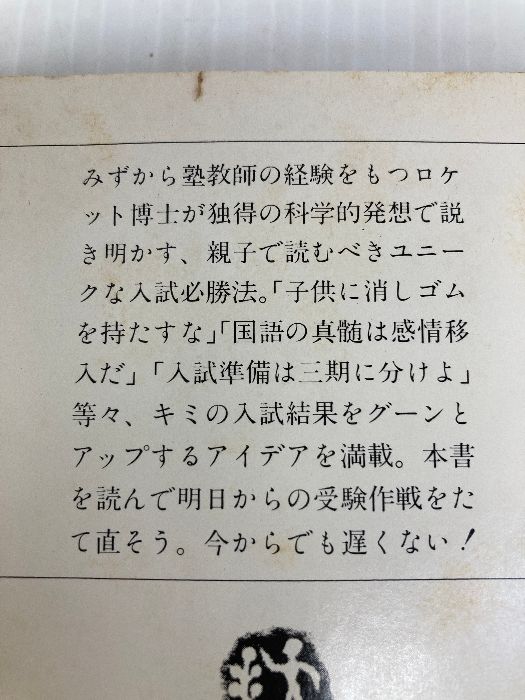 みずから塾教師の経験をもつロケ
ット博士が独得の科学的発想で説
き明かす、親子で読むべきユニー
クな入試必勝法。「子供に消しゴム
を持たすな」「国語の真髄は感情移
入だ」「入試準備は三期に分けよ」
等々、キミの入試結果をグーンと
アップするアイデアを満載。本書
を読んで明日からの受験作戦をた
て直そう。今からでも遅くない！